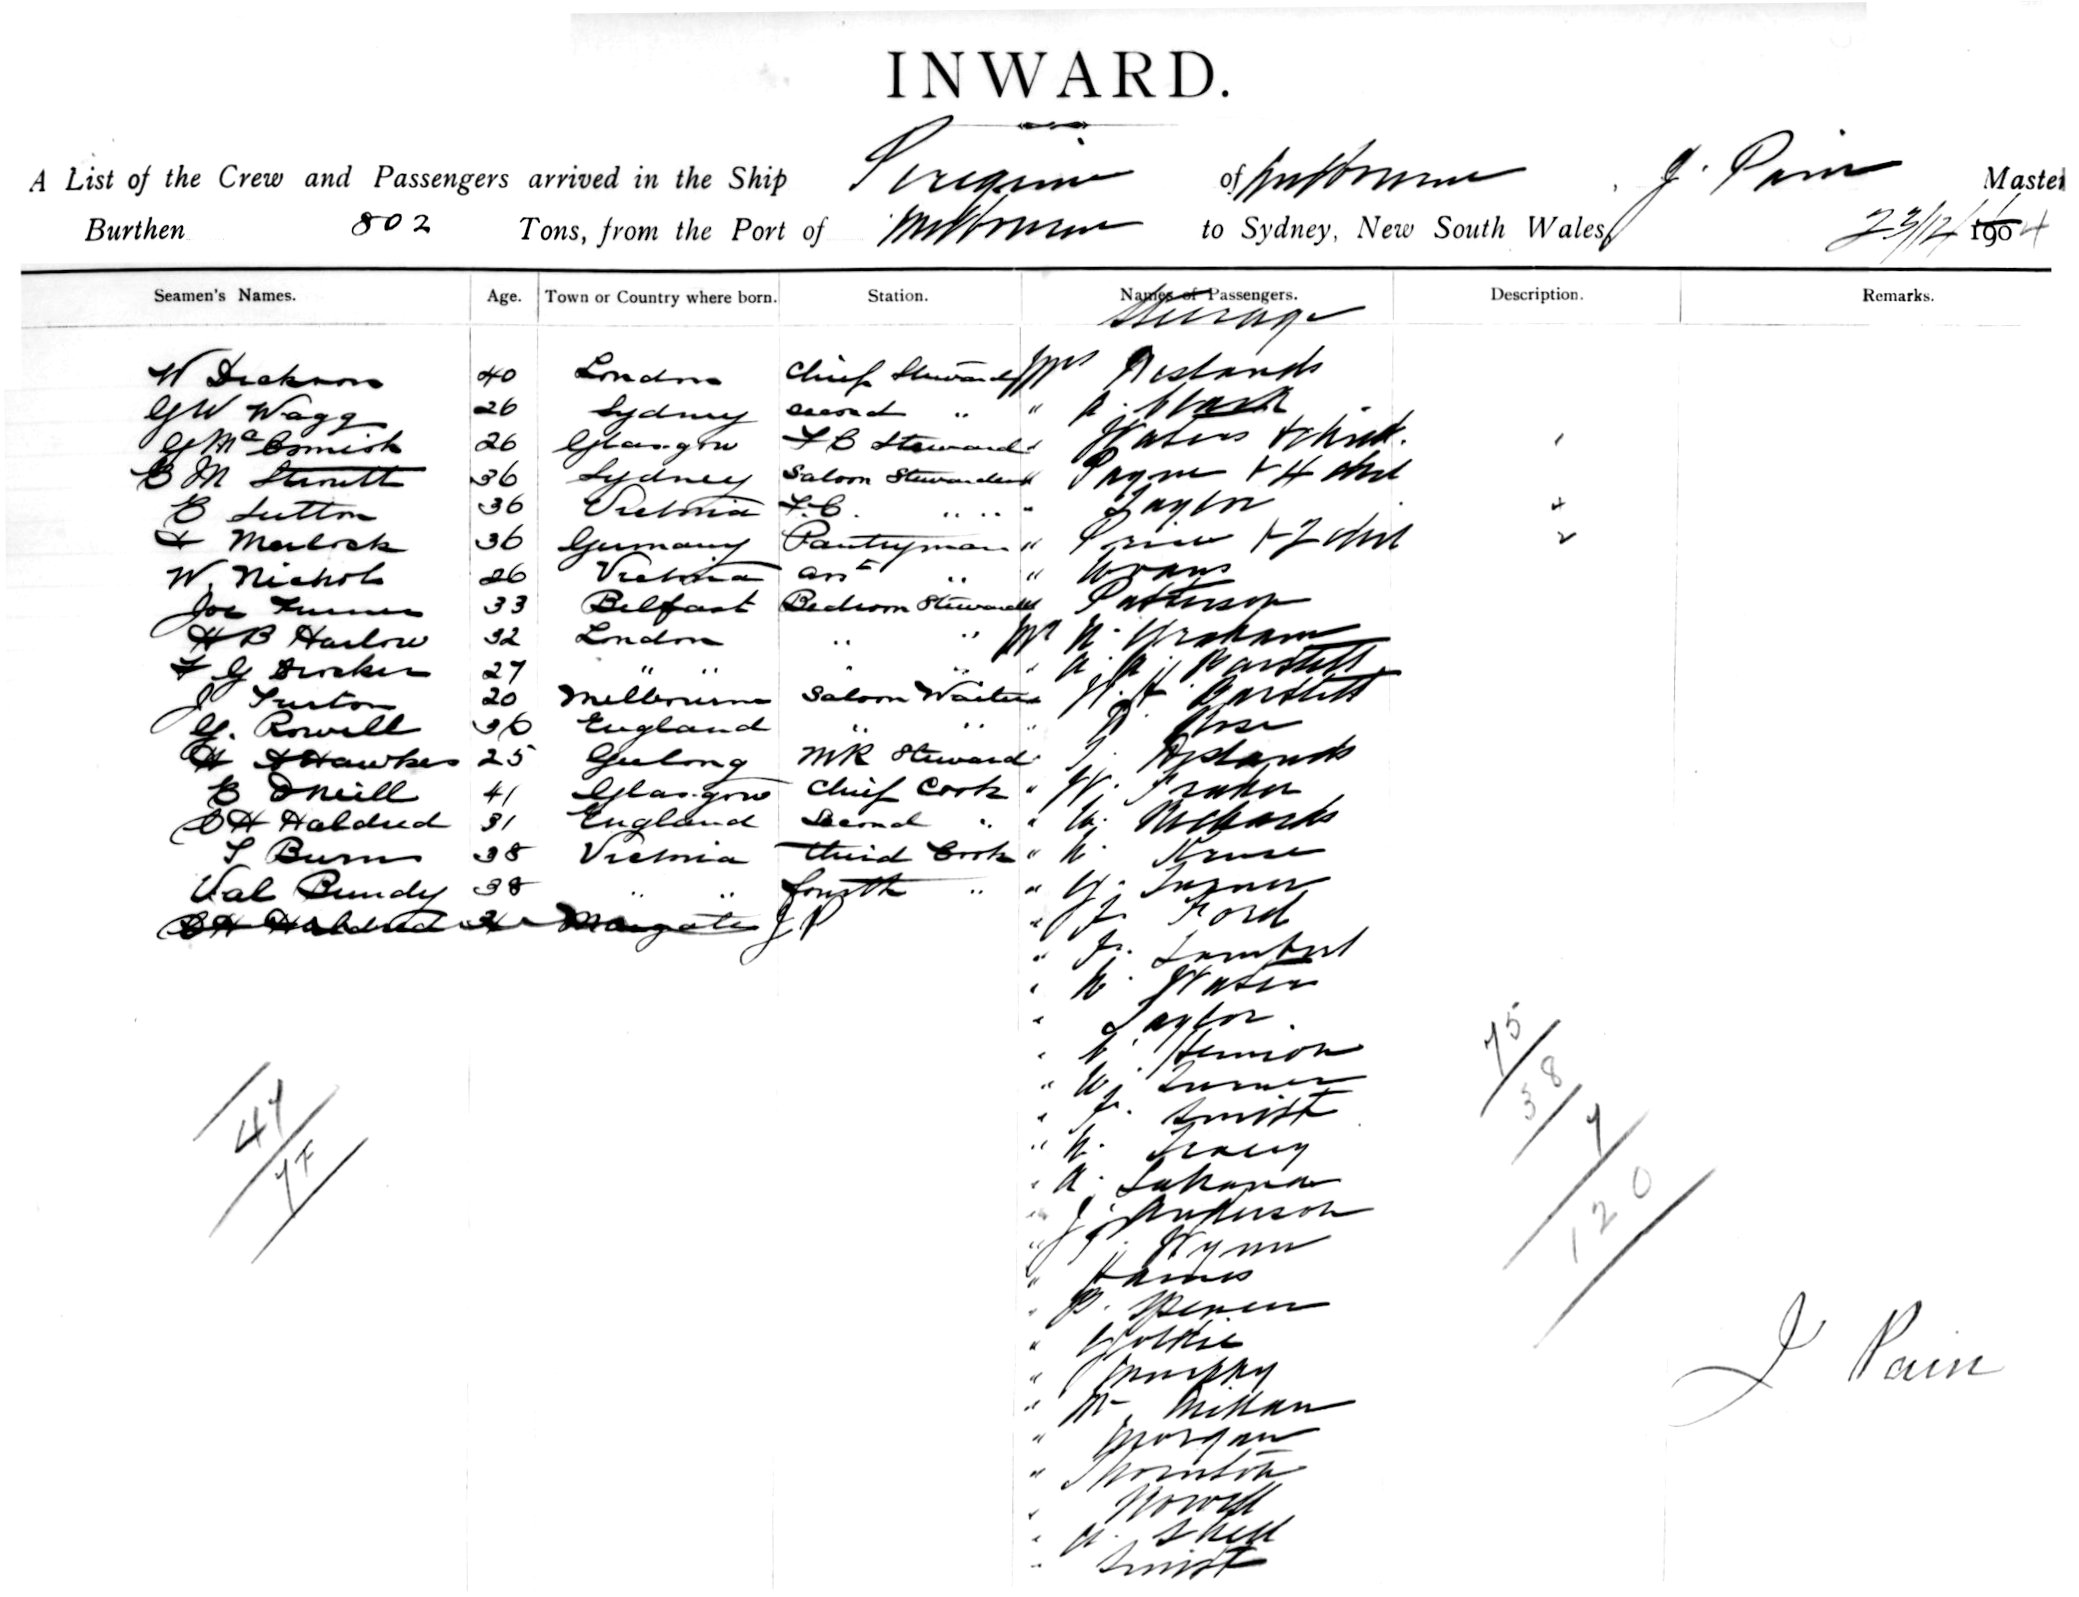 INWARD.
A List of the Crew and Passengers arrived in the Ship Peregrine of Melbourne, J. Pain Master
Burthen 802 Tons, from the Port of Melbourne to Sydney, New South Wales, 23/12/1904
Seamen's Names. Age. Town or Country where born. Station. Names of Passengers. Description. Remarks.
Steerage
W Dickson 40 London Chief Steward Mrs
G W Wagg 26 Sydney second " " A. Clark
G McCormick 26 Glasgow F C Steward " Waters &
E M Sterritt 36 Sydney Saloon Stewardess " Payne & 4 chld
E Sutton 36 Victoria F.C. " " " Taylor 4
Morlock 36 Germany Pantryman " Price & 2 chld 2
W. Nichols 26 Victoria asst " " Evans
Joe Turner 33 Belfast Bedroom Steward " Patterson
H B Harlow 32 London " " Mr N. Graham
F G 27 " " " " " A. A. Bartlett
J Turton 20 Melbourne Saloon Waiter " W. H. Bartlett
G. Rowell 36 England " " " Rose
H A Hawkes 25 Geelong MR Steward "
E ONeill 41 Glasgow Chief Cook " W. Fraher
C H Haldred 31 England Second " " W. Richards
T Burns 38 Victoria third Cook " Kruse
Val Bundy 38 " " fourth " " G. Turner
C H Haldred Margate J P " J. Ford
" J. Lambert
" Waters
" Taylor.
" Hennion
" W. Turner
" J. Smith
" Tracey
" A.
" J. Anderson
" J. Wynn
" Hames
" P. Spencer
" Goldie
" Murphy
" Mc Millan
" Morgan
" Thornton
" Nowell
" Shell
" Smith
47
75
38
7
120
J Pain